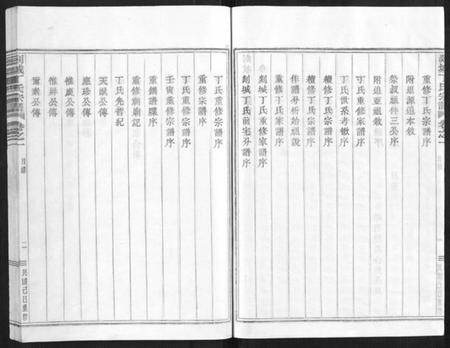 剡城丁氏宗譜卷之一
目錄
重修丁氏宗譜序
附組源遠本敘
祭叔驅祥三公序
附追亞祖敘
丁氏重修家譜序
丁氏世系考徵序
續修丁氏宗譜序
續修丁氏宗譜序
作譜分析始祖說
剡城丁氏重修家譜序
剡城丁氏前宅分譜序
丁氏重修宗譜序
重修宗譜序
壬寅重修宗譜序
重鐫譜牒序
重修朝廟記
丁氏先哲紀
天賦公傳
應珍公傳
惟慶公傳
惟祥公傳
爾素公傳
剡城丁氏宗譜卷之一
目錄
二
民國己巳重修